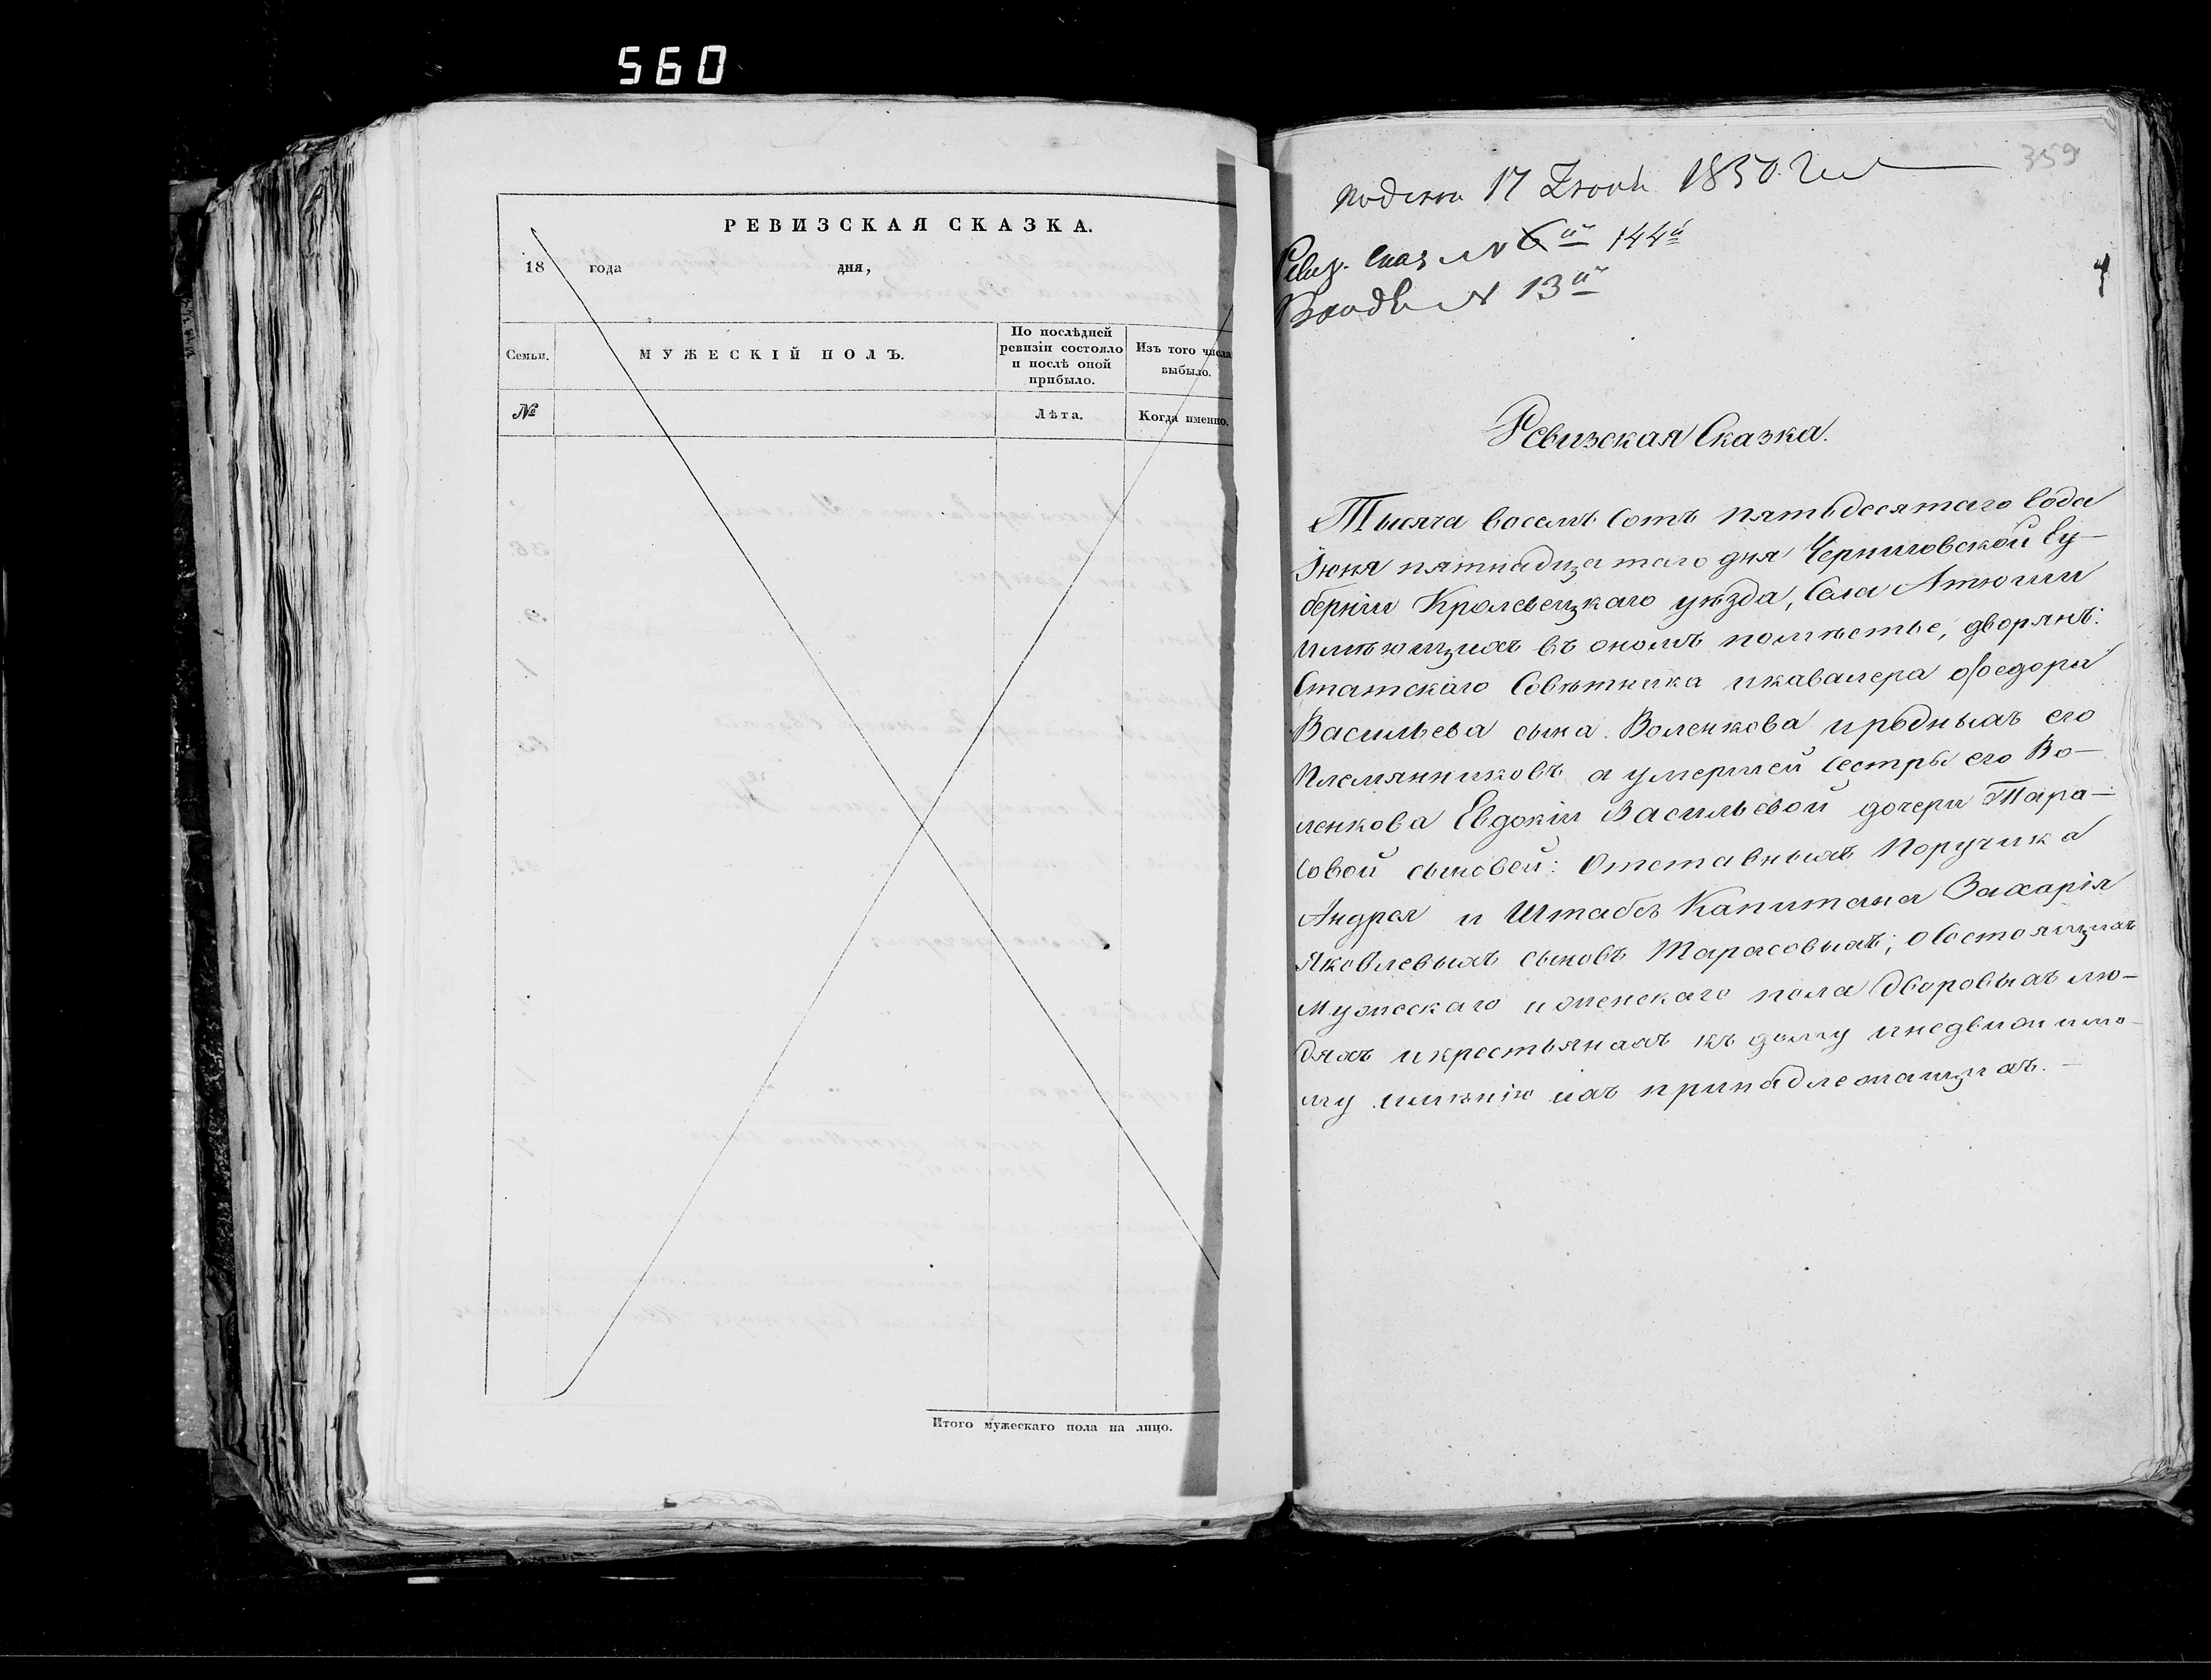 560
РЕВИЗСКАЯ СКАЗКА.
18 года дня,
Семьи.
МУЖЕСКІЙ ПОЛЪ.
По послѣдней ревизіи состояло и послѣ оной прибыло.
Изъ того числа выбыло.
№
Лѣта.
Когда именно.
Итого мужескаго пола на лицо.
359
17 1850.
Ревиз. Сказ № 6й 144й
№ 13й
4
Ревизская Сказка.
Тысяча восемь сотъ пятьдесятаго года
Іюня пятнадцатаго дня Черниговской Гу–
берніи Кролевецкаго уѣзда, Села Атюши
имѣющихъ въ ономъ помѣстье, дворянъ:
Статскаго Совѣтника и кавалера Ѳедора
Васильева сына Воленкова и родныхъ его
Племянниковъ а умершей сестры его Во–
ленкова Евдокіи Васильевой дочери Тара–
совой сыновей: Отставныхъ Поручика
Андрея и Штабсъ Капитана Захарія
Яковлевыхъ сыновъ Тарасовыхъ; о Состоящихъ
Мужескаго и женскаго пола дворовыхъ лю–
дяхъ и крестьянахъ къ дому и недвижимо–
му имѣнію ихъ принадлежащихъ. –